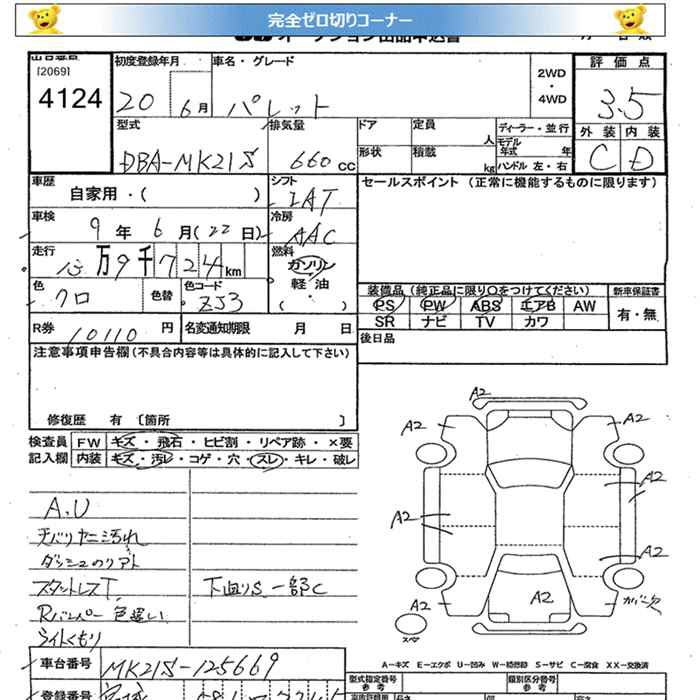 完全ゼロ切りコーナー
オークション出品申込書
出品番号
[2069]
4124
初度登録年月
20
6月
車名・グレード
パレット
2WD
・
4WD
評価点
3.5
外装 内装
C D
型式
DBA-MK21S
排気量
660 cc
ドア
定員
人
形状
積載
kg
ディーラー・並行
モデル年式
年
ハンドル 左・右
車歴
自家用・( )
シフト
IAT
セールスポイント (正常に機能するものに限ります)
車検
9年 6月(22日)
冷房
AAC
走行
万9千724km
燃料
ガソリン
軽油
・
( )
色
クロ
色替
色コード
ZJ3
装備品(純正品に限り○をつけてください)
新車保証書
PS PW ABS エアB AW
SR ナビ TV カワ
有・無
R券
10110円
名変通知期限
月 日
後日品
注意事項申告欄(不具合内容等は具体的に記入して下さい)
修復歴 有 〔箇所 〕
検査員
記入欄
FW キズ・飛石・ヒビ割・リペア跡・×要
内装 キズ・汚レ・コゲ・穴・スレ・キレ・破レ
A.U
天バリヤニ汚れ
ダッシュのリアト
スタットレスT
下廻りS 一部C
Rバンパー色違い
ライトくもり
A2
A2
A2
A2
A2
A2
A2
A2
カバー欠
スペア
A…キズ E…エクボ U…凹み W…補修跡 S…サビ C…腐食 XX…交換済
車台番号
MK21S-125669
登録番号
型式指定番号
参考
類別区分番号
参考